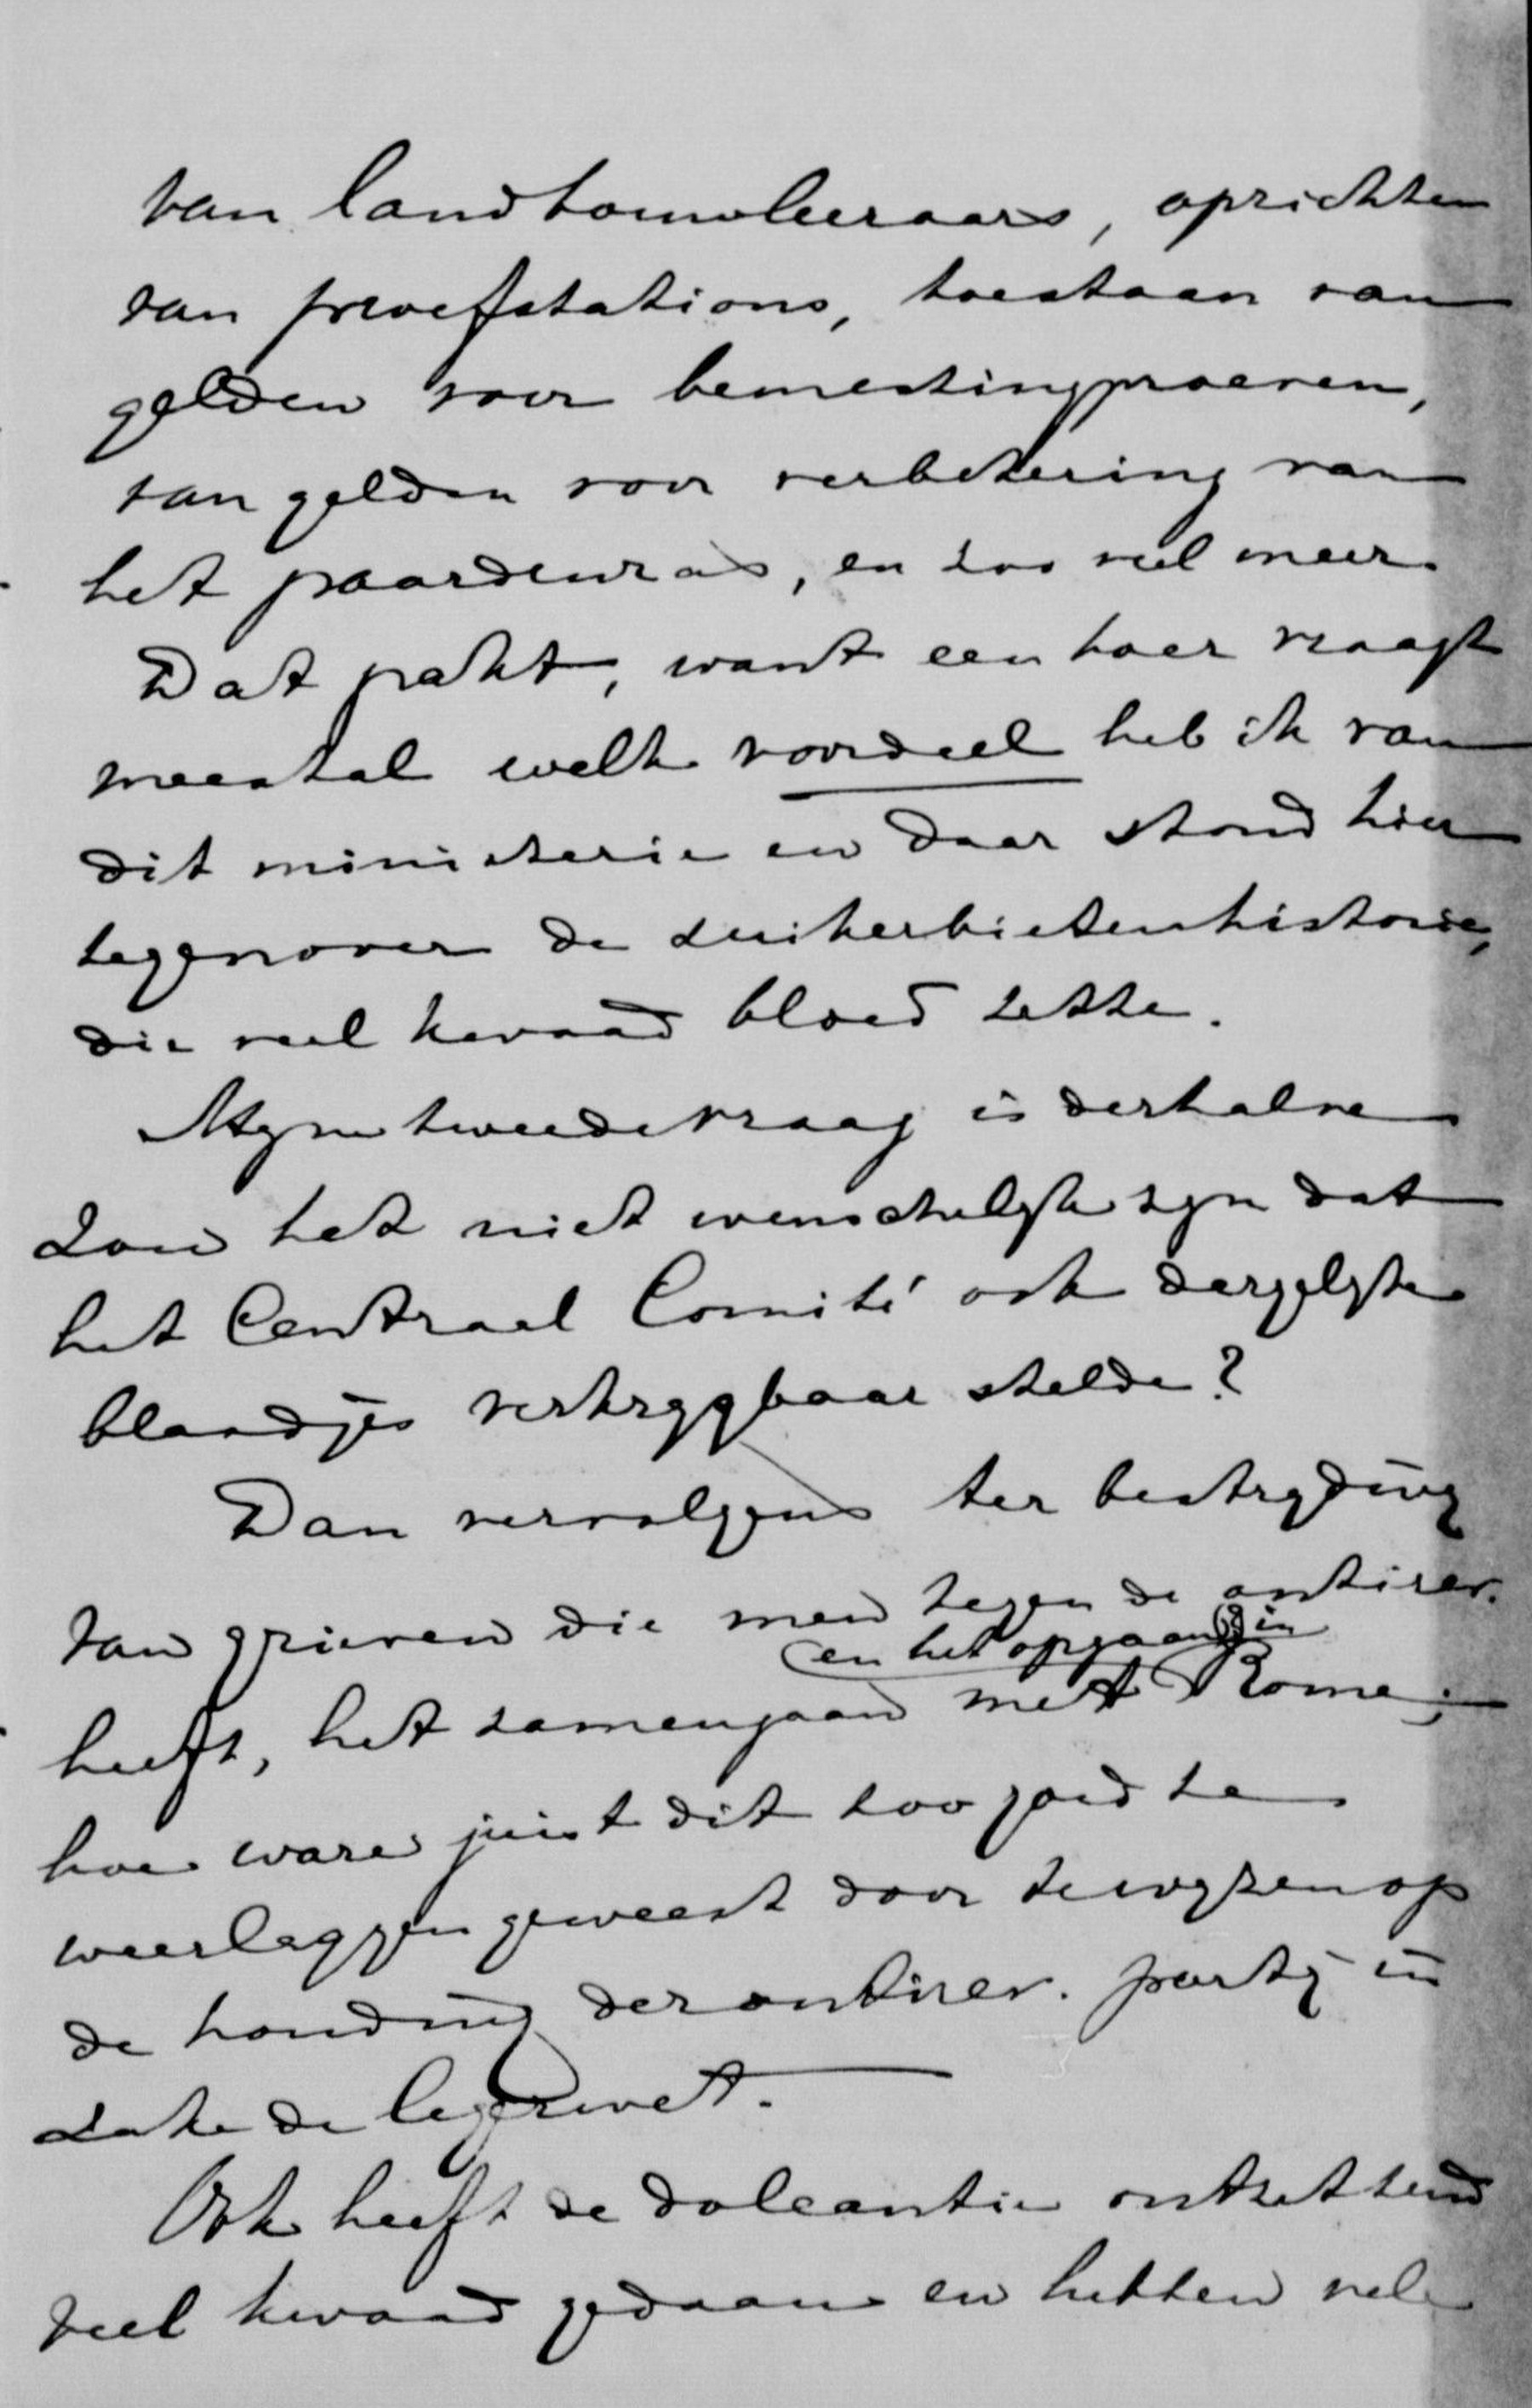 van landbouwleeraars, oprichten
van proefstations, toestaan van
gelden voor bemestingproeven,
van gelden voor verbetering van
het paardenras, en zoo veel meer.
Dat pakt, want een boer vraagt
meestal welk voordeel heb ik van
dit ministerie en daar stond hier
tegenover de suikerbietenhistorie,
die veel kwaad bloed zette.
Mijne tweede vraag is derhalve
Zou het niet wenschelijk zijn dat
het Centraal Comité ook dergelijke
blaadjes verkrijgbaar stelde?
Dan vervolgens ter bestrijding
van grieven die men tegen de antirev.
(en het opgaan in)
heeft, het samengaan met Rome;
hoe ware juist dit zoo goed te
weerleggen geweest door te wijzen op
de houding der antirev. partij in
zake de legerwet.
Ook heeft de doleantie ontzettend
veel kwaad gedaan en hebben vele